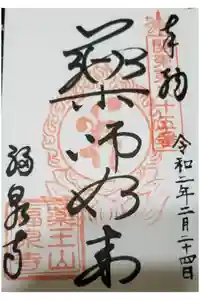 奉拝
令和二年二月二十四日
藥師如来
福泉寺
薬王山
福泉寺